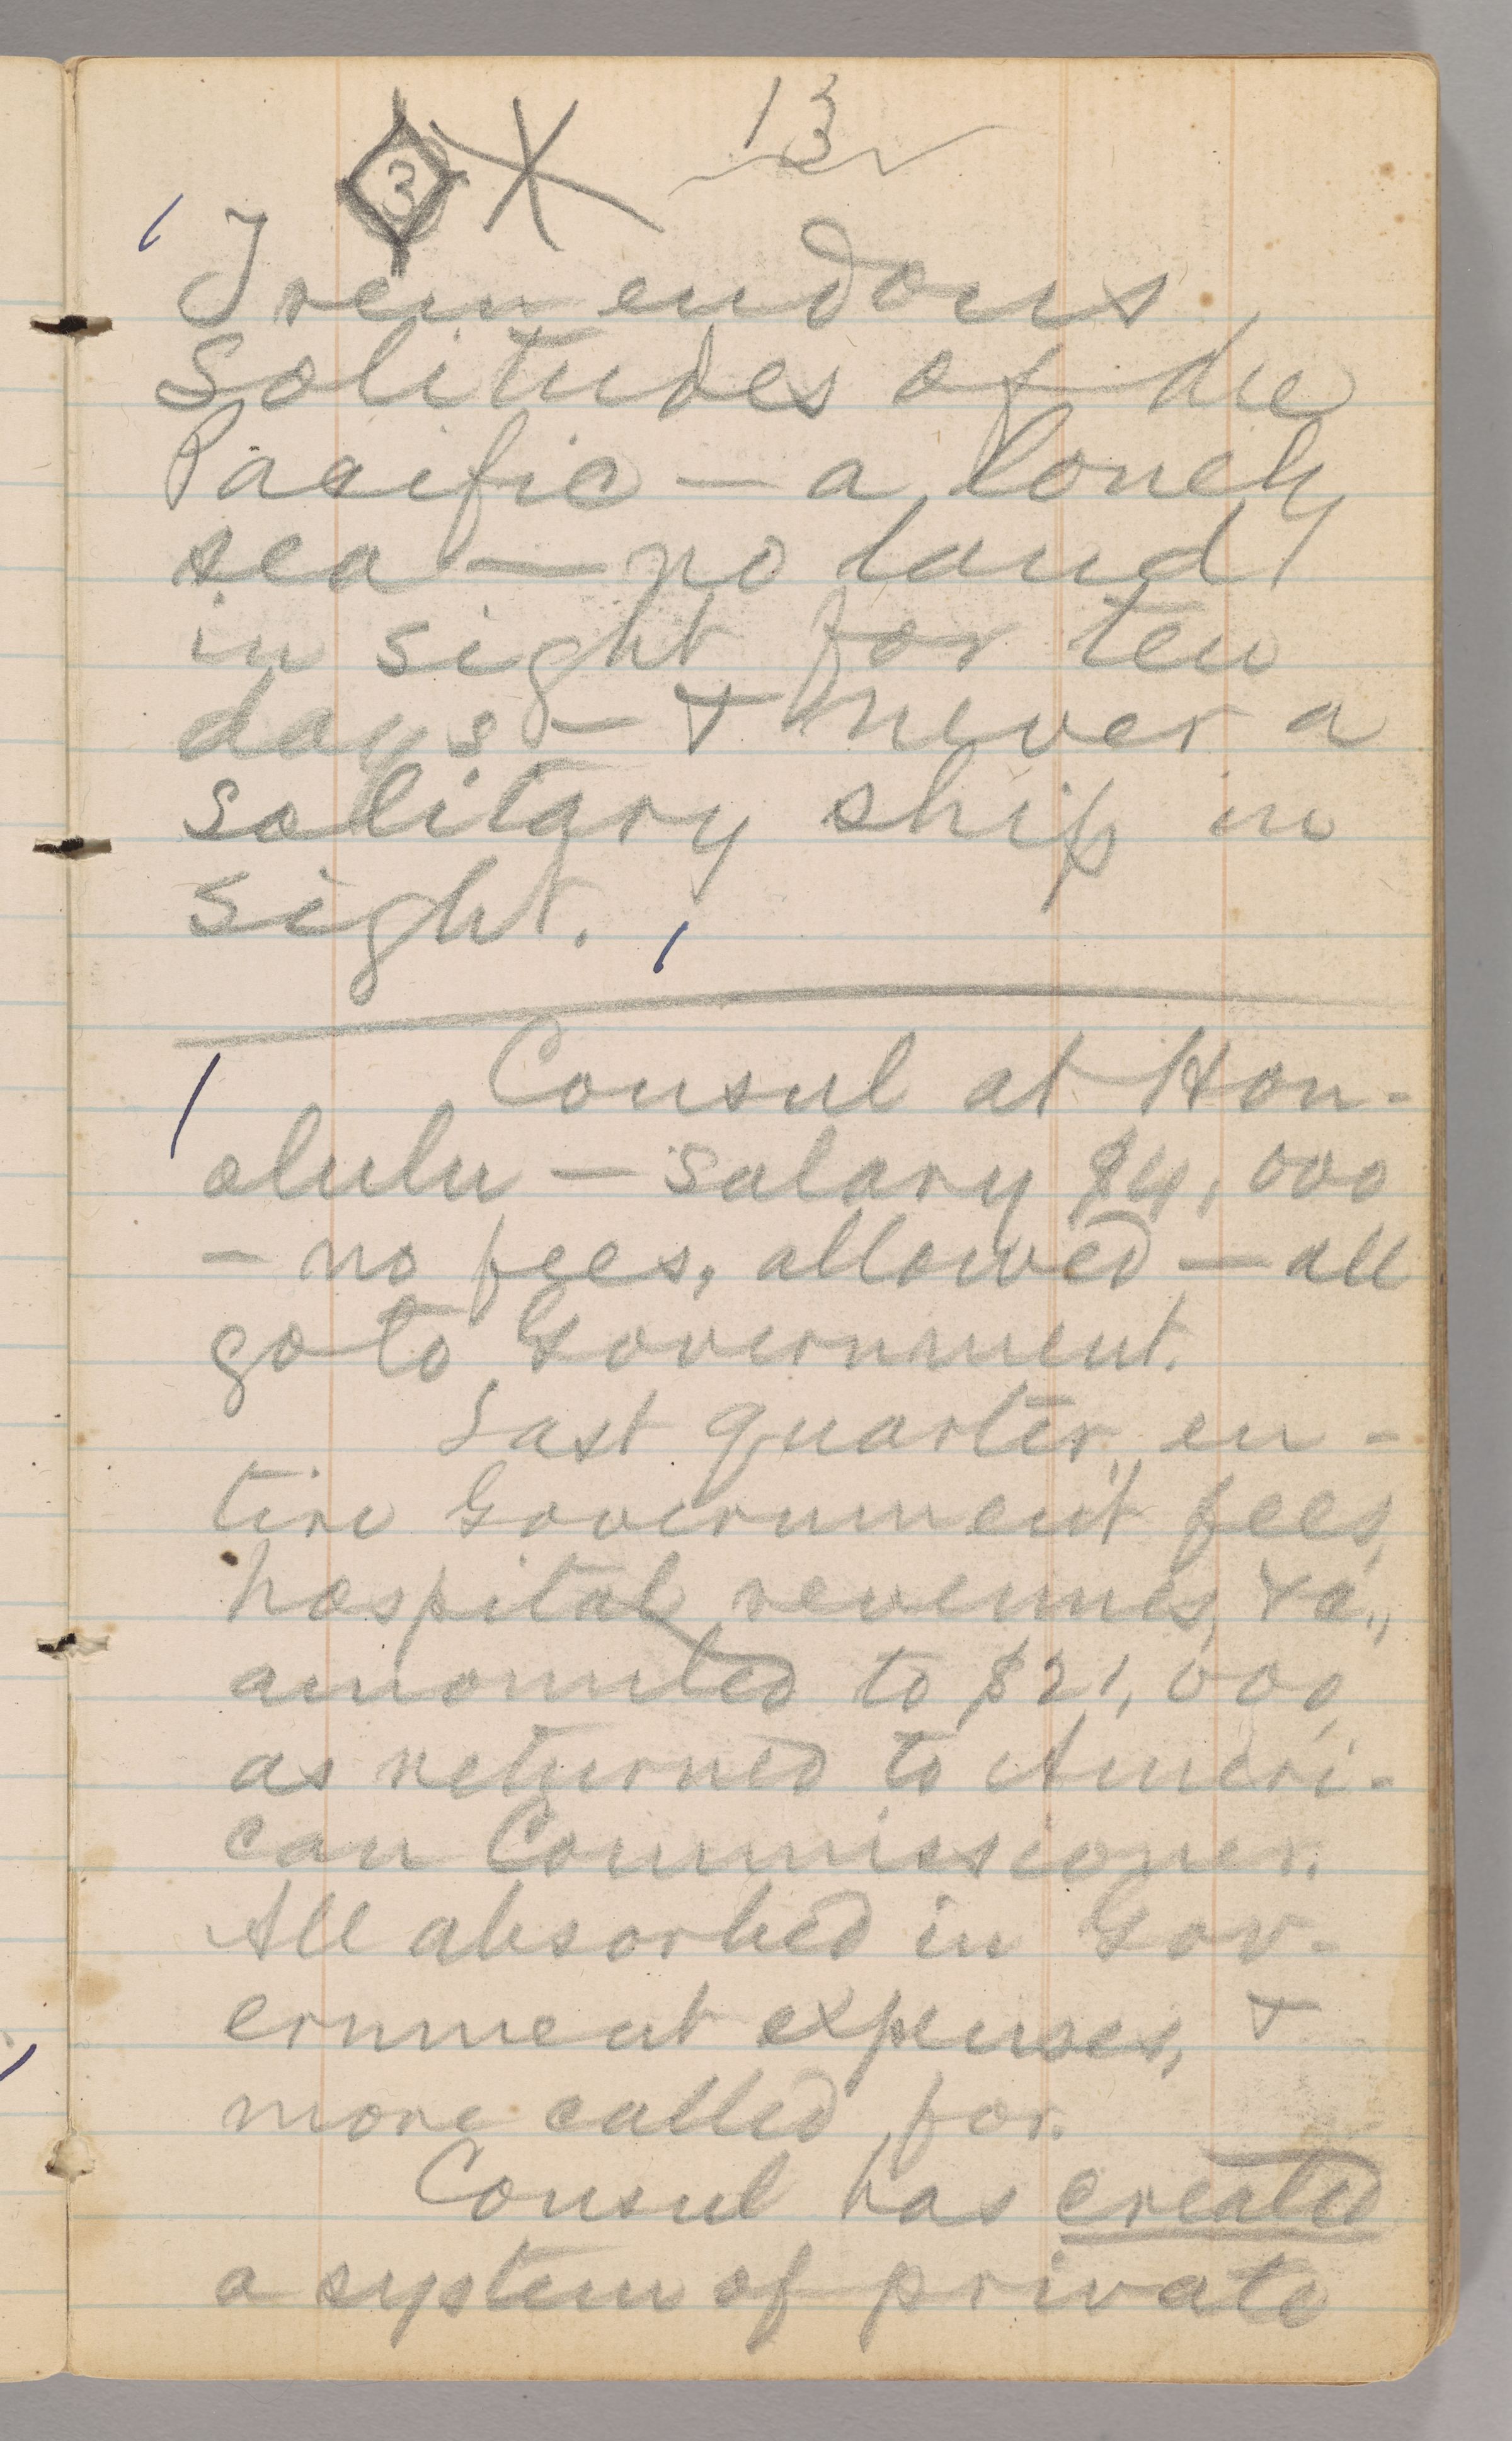 3 13
Tremendous
Solitudes of the
Pacific — a lonely
sea — no land
in sight for ten
days — & never a
solitary ship in
sight.
Consul at Hon-
olulu — salary $4,000
— no fees, allowed — all
go to Government.
Last quarter, en-
tire Government fees,
hospital revenues, &c.,
amounted to $21,000,
as returned to Ameri-
can Commissioner.
All absorbed in Gov-
ernment expenses, &
more called for.
Consul has created
a system of private